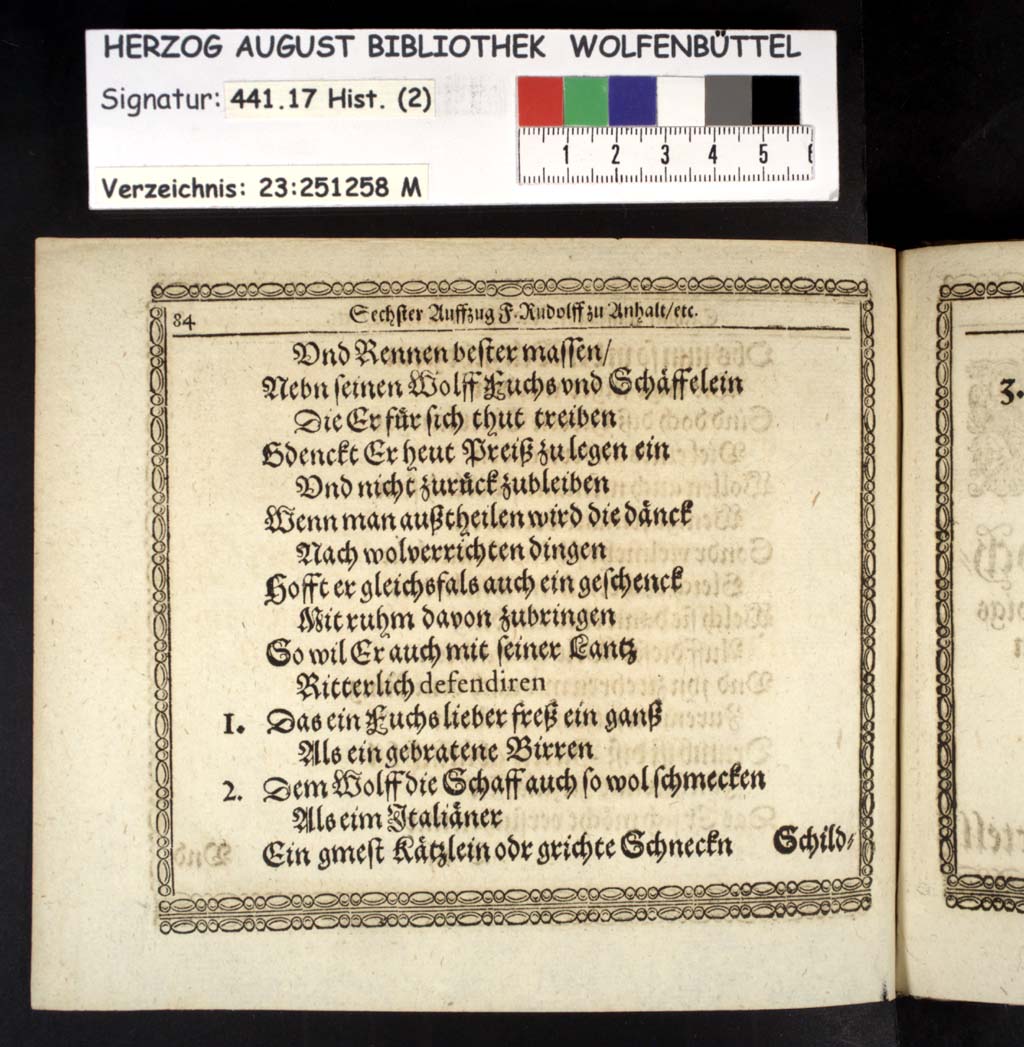 HERZOG AUGUST BIBLIOTHEK WOLFENBÜTTEL
Signatur: 441.17 Hist. (2)
1 2 3 4 5 6
Verzeichnis: 23:251258 M
84 Sechster Auffzug F. Rudolff zu Anhalt/etc.
Vnd Rennen bester massen/
Nebn seinen Wolff Fuchs vnd Schäffelein
Die Er für sich thut treiben
Gdenckt Er heut Preiß zu legen ein
Vnd nicht zurück zubleiben
Wenn man außtheilen wird die dänck
Nach wolverrichten dingen
Hofft er gleichsfals auch ein geschenck
Mit ruhm davon zubringen
So wil Er auch mit seiner Lantz
Ritterlich defendiren
1. Das ein Fuchs lieber freß ein ganß
Als ein gebratene Birren
2. Dem Wolff die Schaff auch so wol schmecken
Als eim Italiäner
Ein gmest Kätzlein odr grichte Schneckn Schild-
3.